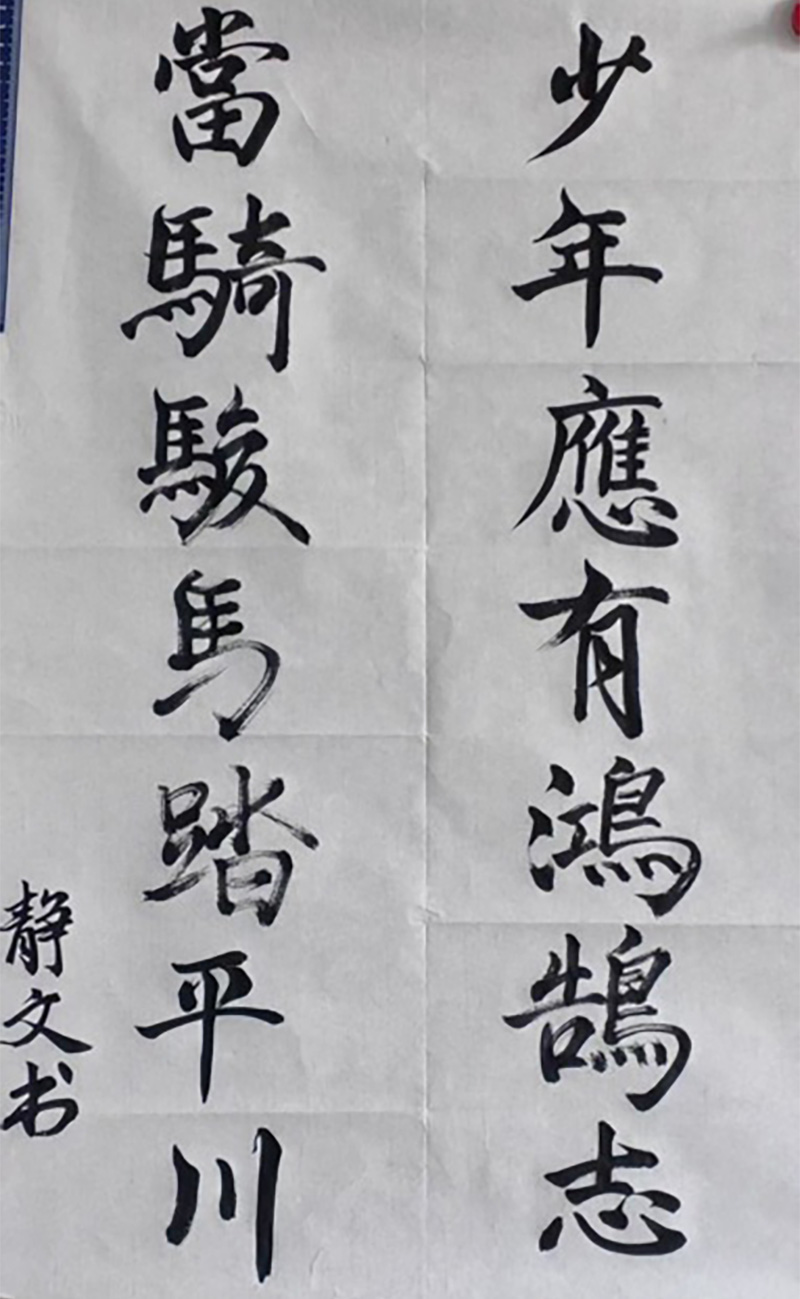 少年應有鴻鵠志
當騎駿馬踏平川
静文书